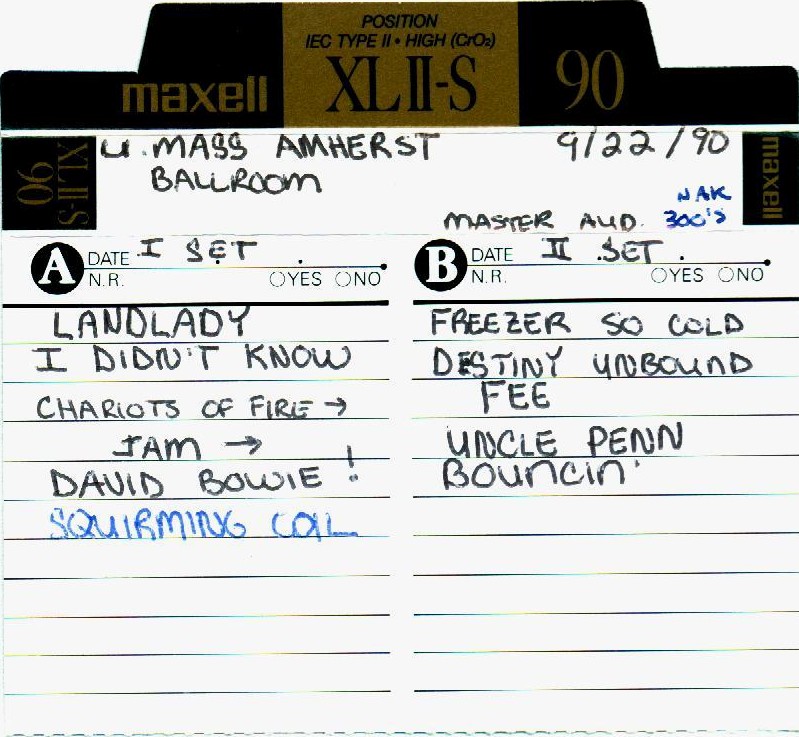 POSITION
IEC TYPE II • HIGH (CrO2)
maxell XLII-S 90
XLII-S 90
U. MASS AMHERST 9/22/90
BALLROOM
maxell
NAK
MASTER AUD. 300'S
A DATE I SET
N.R. YES NO
LANDLADY
I DIDN'T KNOW
CHARIOTS OF FIRE →
JAM →
DAVID BOWIE !
SQUIRMING COIL
B DATE II SET
N.R. YES NO
FREEZER SO COLD
DESTINY UNBOUND
FEE
UNCLE PENN
BOUNCIN'